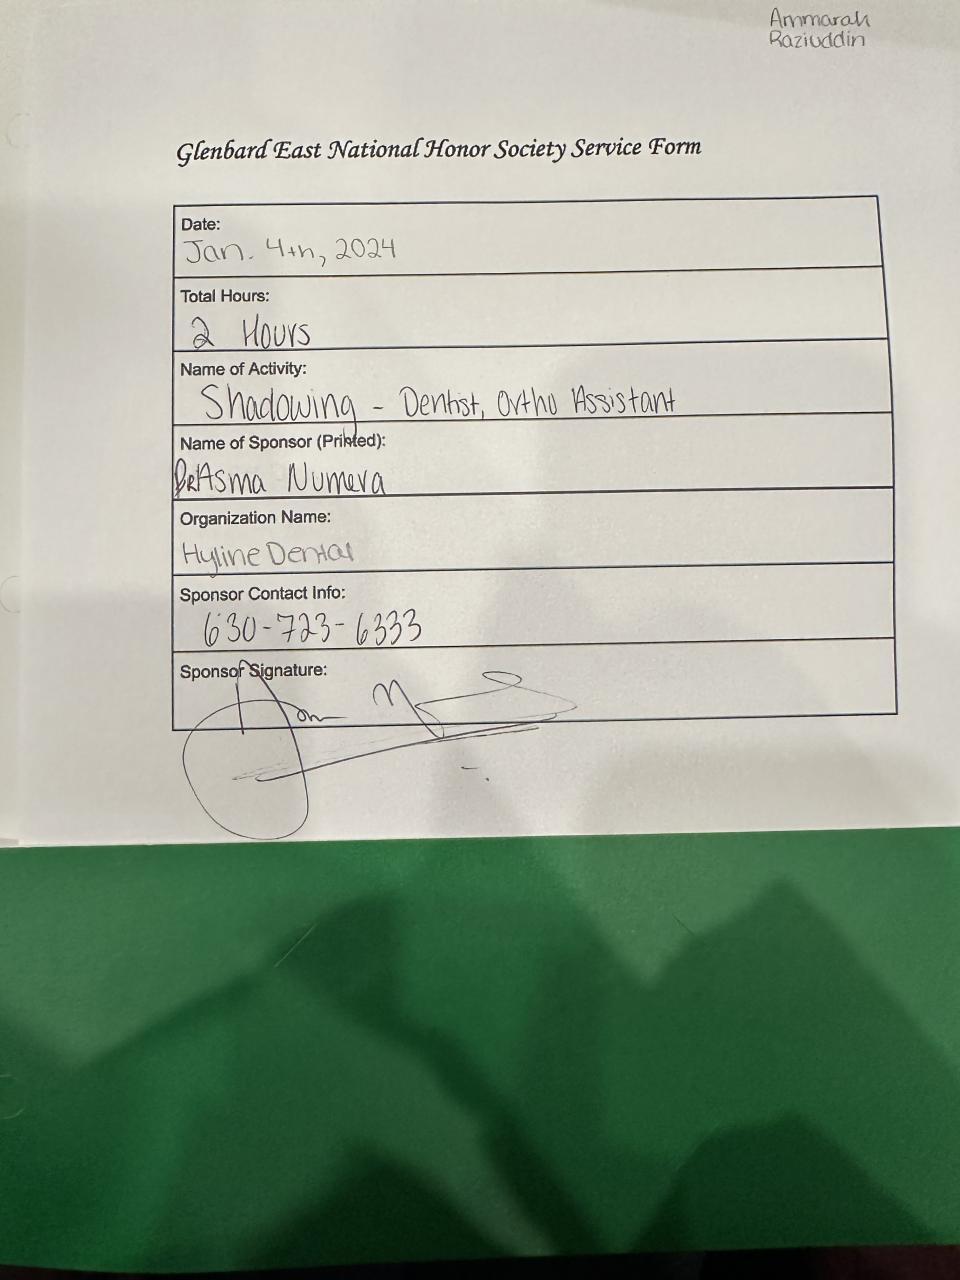 Ammarah
Raziuddin
Glenbard East National Honor Society Service Form
Date:
Jan. 4th, 2024
Total Hours:
2 Hours
Name of Activity:
Shadowing - Dentist, Ortho Assistant
Name of Sponsor (Printed):
Dr Asma Numera
Organization Name:
Hyline Dental
Sponsor Contact Info:
630-723-6333
Sponsor Signature: